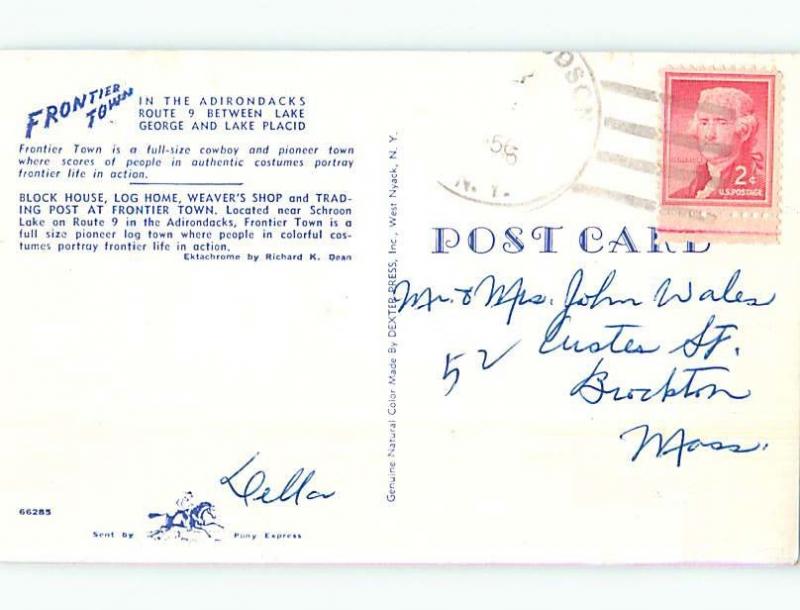 FRONTIER TOWN
IN THE ADIRONDACKS
ROUTE 9 BETWEEN LAKE
GEORGE AND LAKE PLACID
Frontier Town is a full-size cowboy and pioneer town
where scores of people in authentic costumes portray
frontier life in action.
BLOCK HOUSE, LOG HOME, WEAVER'S SHOP and TRAD-
ING POST AT FRONTIER TOWN. Located near Schroon
Lake on Route 9 in the Adirondacks, Frontier Town is a
full size pioneer log town where people in colorful cos-
tumes portray frontier life in action.
Ektachrome by Richard K. Dean
Della
66285
Sent by Pony Express
Genuine Natural Color Made By DEXTER PRESS, Inc., West Nyack, N. Y.
56
N. Y.
2¢
U.S. POSTAGE
POST CARD
Mr. & Mrs. John Wales
52 Custer St.
Brockton
Mass.